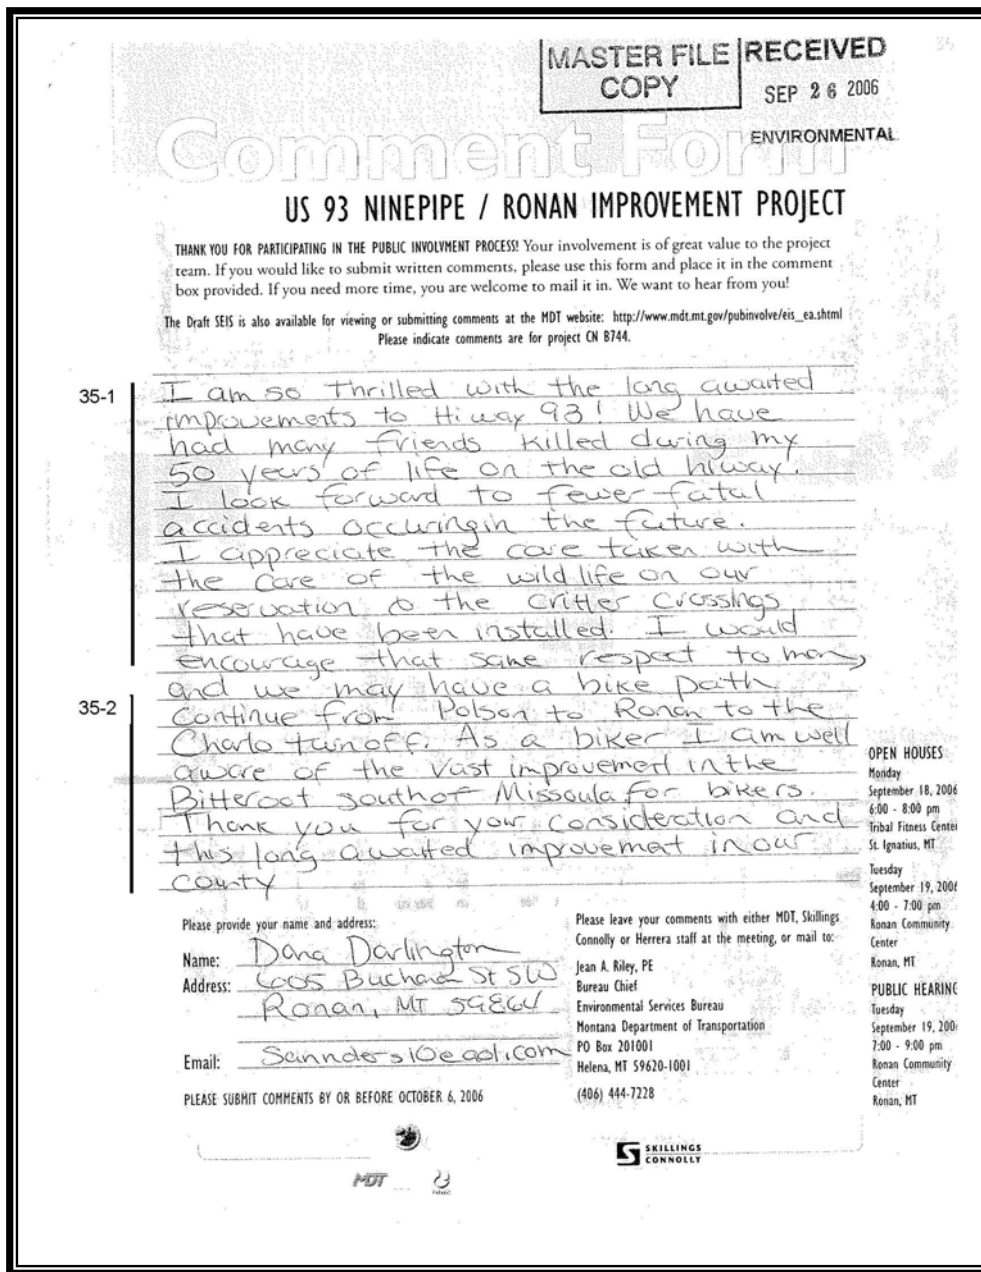 MASTER FILE
COPY
RECEIVED
SEP 26 2006
ENVIRONMENTAL
35
Comment Form
US 93 NINEPIPE / RONAN IMPROVEMENT PROJECT
THANK YOU FOR PARTICIPATING IN THE PUBLIC INVOLVMENT PROCESS! Your involvement is of great value to the project
team. If you would like to submit written comments, please use this form and place it in the comment
box provided. If you need more time, you are welcome to mail it in. We want to hear from you!
The Draft SEIS is also available for viewing or submitting comments at the MDT website: http://www.mdt.mt.gov/pubinvolve/eis_ea.shtml
Please indicate comments are for project CN B744.
35-1
I am so thrilled with the long awaited
improvements to Hiway 93! We have
had many friends killed during my
50 years of life on the old hiway.
I look forward to fewer fatal
accidents occuring in the future.
I appreciate the care taken with
the care of the wildlife on our
reservation & the critter crossings
that have been installed. I would
encourage that same respect to man,
and we may have a bike path
35-2
continue from Polson to Ronan to the
Charlo turnoff. As a biker I am well
aware of the vast improvement in the
Bitteroot south of Missoula for bikers.
Thank you for your consideration and
this long awaited improvement in our
county
Please provide your name and address:
Name: Dana Darlington
Address: Buchanan St SW
Ronan, MT 59864
Email:
PLEASE SUBMIT COMMENTS BY OR BEFORE OCTOBER 6, 2006
Please leave your comments with either MDT, Skillings
Connolly or Herrera staff at the meeting, or mail to:
Jean A. Riley, PE
Bureau Chief
Environmental Services Bureau
Montana Department of Transportation
PO Box 201001
Helena, MT 59620-1001
(406) 444-7228
OPEN HOUSES
Monday
September 18, 2006
6:00 - 8:00 pm
Tribal Fitness Center
St. Ignatius, MT
Tuesday
September 19, 2006
4:00 - 7:00 pm
Ronan Community
Center
Ronan, MT
PUBLIC HEARING
Tuesday
September 19, 200
7:00 - 9:00 pm
Ronan Community
Center
Ronan, MT
MDT
SKILLINGS
CONNOLLY